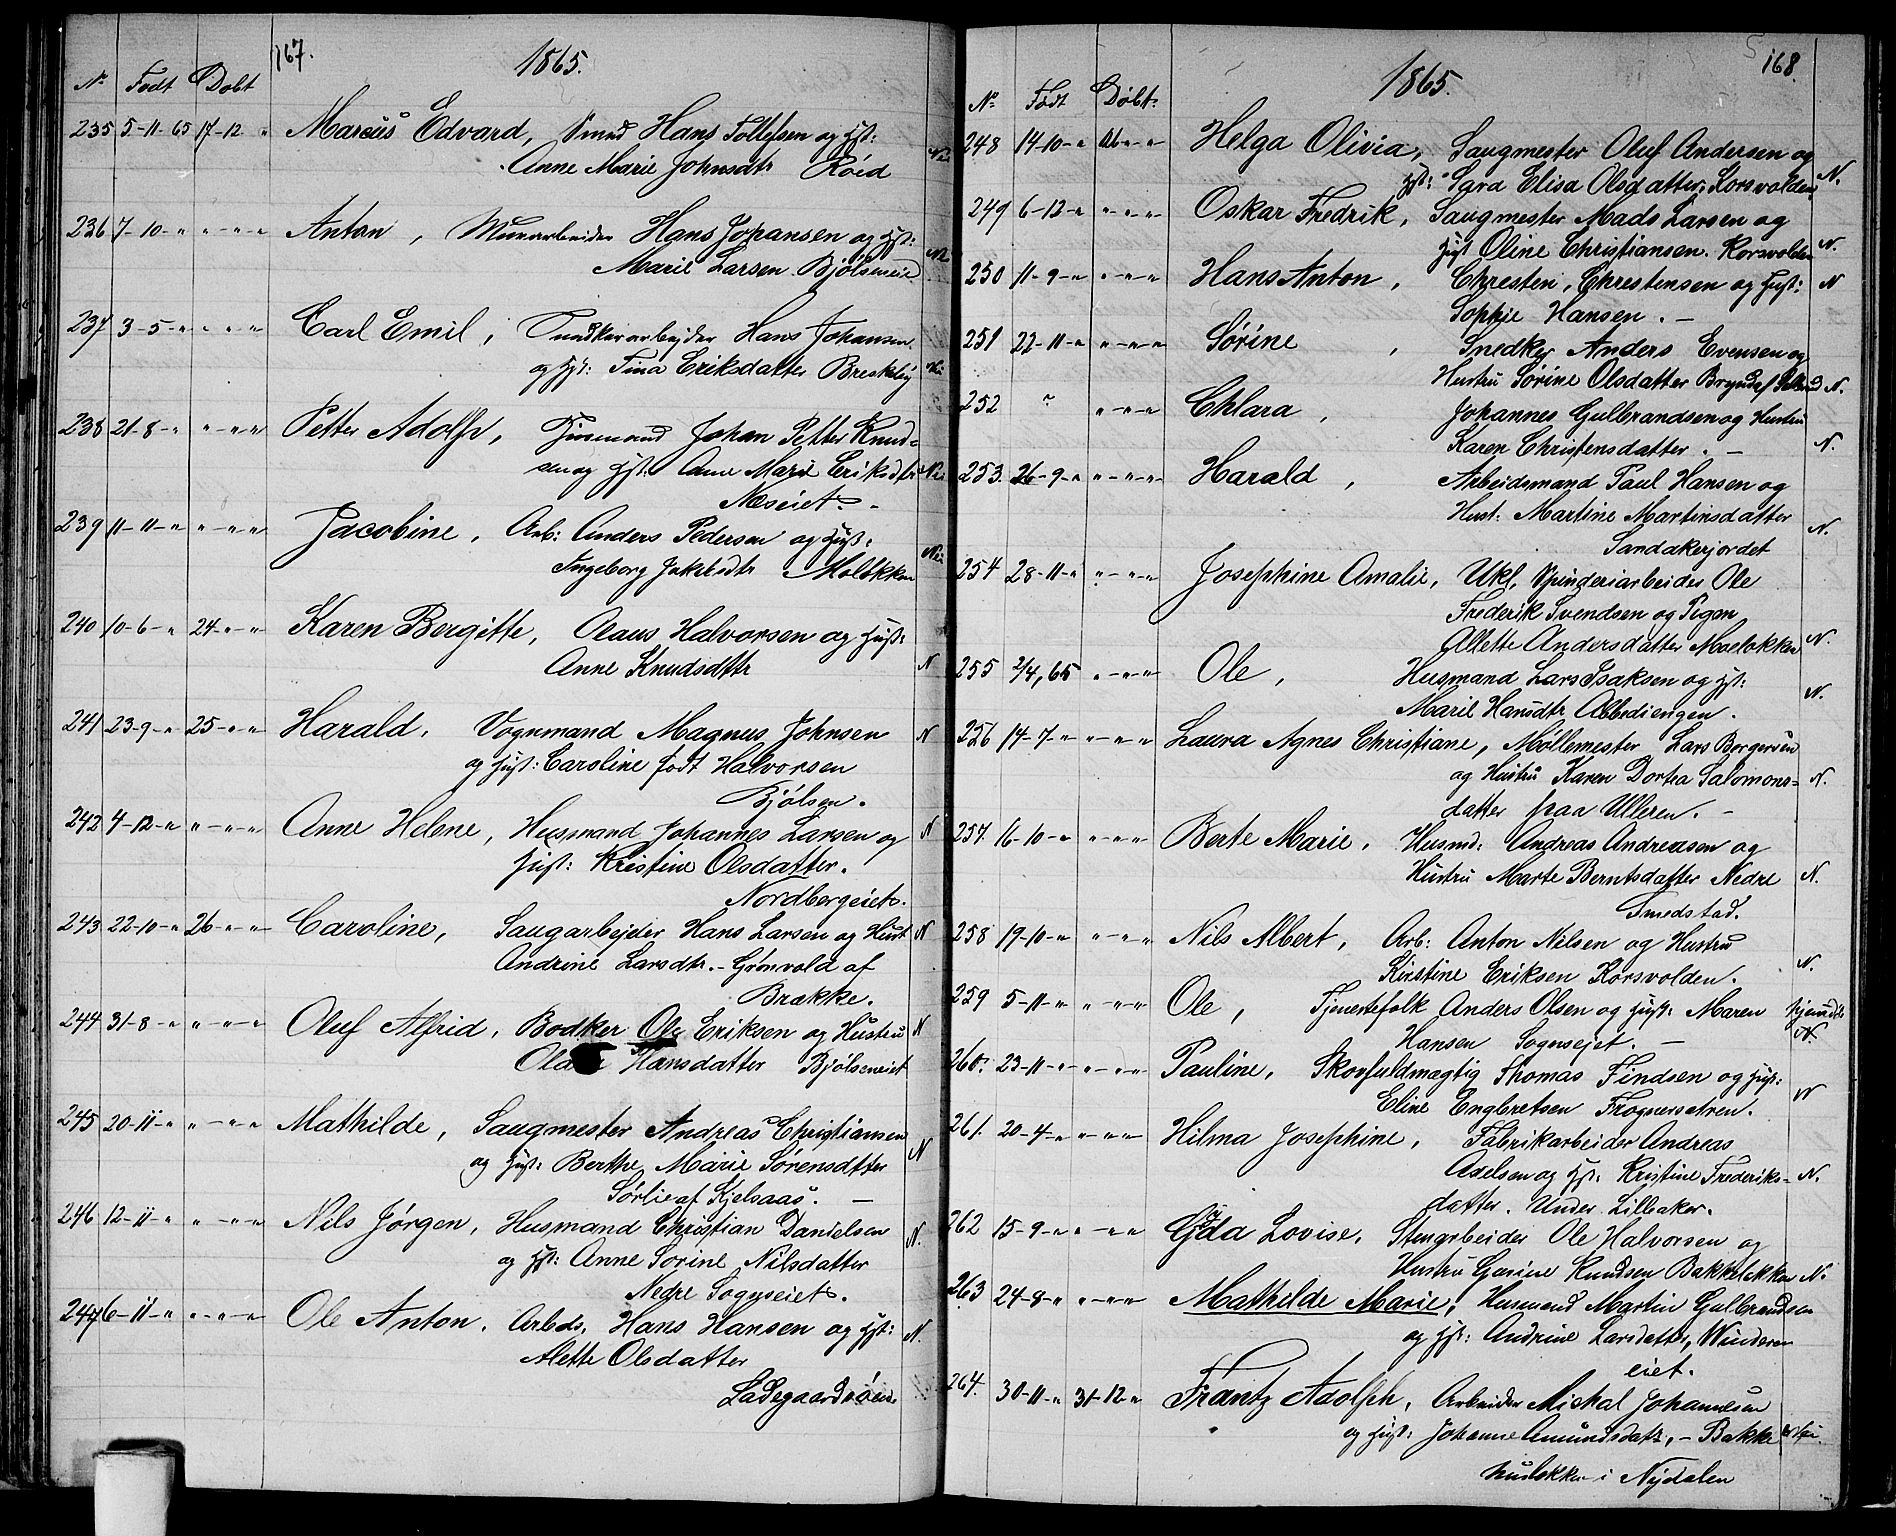 167.
1865.
No Født Døbt
235 5-11-65 17-12 " Marcus Edvard, Smed Hans Tollefsen og Hst:
Anne Marie Johnsdtr Röed
236 7-10-" "-"-" Anton, Murarbeider Hans Johansen og Hst: N
Marie Larsen Bjölseneie
237 3-5-" "-"-" Carl Emil, Hans Johansen
og Hst: Tina Eriksdatter Breskeby
238 21-8-" "-"-" Petter Adolf, Husmand Johan Petter Knud=
sen og Hst: Anne Marie Eriksdtr
Næseiet. -
239 11-11-" "-"-" Jacobine, Arb: Anders Pedersen og Hust:
Ingeborg Jakobsdtr
240 10-6-" 24-"-" Karen Bergitte, Olaus Halvorsen og Hust:
Anne Knudsdttr N
241 23-9-" 25-"-" Harald, Vognmand Magnus Johnsen N
og Hust: Caroline født Halvorsen
Bjölsen.
242 4-12-" "-"-" Anne Helene, Husmand Johannes Larsen og N
Hust: Kristine Olsdatter.
Nordbergeiet.
243 22-10-" 26-"-" Caroline, Saugarbejder Hans Larsen og Hust N
Andrine Larsdtr. - Grönvold af
Brække.
244 31-8-" "-"-" Oluf Alfrid, Bödker Ole Eriksen og Hustru N
Hansdatter Bjölseneiet
245 20-11-" "-"-" Mathilde, Saugmester Andreas Christiansen
og Hust: Berthe Marie Sörensdtter N
Sörlie af Kjelsaas. -
246 12-11-" "-"-" Nils Jörgen, Husmand Christian Danielsen
og Hst: Anne Sorine Nilsdatter N.
Nedre Sogneseiet.
247 6-11-" "-"-" Ole Anton, Arbds. Hans Hansen og Hst: N.
Alette Olsdatter
Ladegaardsöen
168.
1865.
No Født Døbt
248 14-10-" 26-"-" Helga Olivia, Saugmester Oluf Andersen og
Hst: Sara Elisa Olsdatter, Korsvolden N.
249 6-12-" "-"-" Oskar Fredrik, Saugmester Mads Larsen og
Hust Oline Christiansen. Korsvolden N.
250 11-9-" "-"-" Hans Anton, Christen Christensen og Hust: N
Sophie Hansen. -
251 22-11-" "-"-" Sörine, Snedker Anders Evensen og
Hustru Sörine Olsdatter N.
252 " "-"-" Chlara, Johannes Gulbrandsen og Hustru
Karen Christensdatter. - N.
253. 26-9-" "-"-" Harald, Arbeidsmand Paul Hansen og
Hust: Martine Martinsdatter
Sandakerjordet N.
254 28-11-" "-"-" Josephine Amalie, Ukl. Spinderiarbeider Ole
Frederik Svendsen og Pigen
Allette Andersdatter Moelökken N.
255 2/4, 65 "-"-" Ole, Husmand Lars Isaksen og Hst:
Marie Hansdtr Abbediengen. N.
256 14-7-" "-"-" Laura Agnes Christiane, Møllemester Lars Borgersen
og Hustru Karen Dortea Salomons=
datter paa Ulleren. - N.
257. 16-10-" "-"-" Berte Marie, Husmd. Andreas Andreasen og
Hustru Marte Berntsdatter Nedre N.
Smedstad.
258 19-10-" "-"-" Nils Albert, Arb: Anton Nilsen og Hustru
Kirstine Eriksen Korsvolden. N.
259 5-11-" "-"-" Ole, Tjenestefolk Anders Olsen og Hust: Maren
Hansen Sognsejet. - N.
260. 23-11-" "-"-" Pauline, Skovfuldmægtig Thomas Findsen og Hust:
Eline Engbretsen Frognersætren. N
261. 20-4-" "-"-" Hilma Josephine, Fabrikarbeider Andreas
Axelsen og Hst: Kristine Frederiks- N.
datter. Under Lilleaker.
262 15-9-" "-"-" Gyda Lovise, Stenarbeider Ole Halvorsen og
Hustru Gurine Knudsen Bakkelökken N.
263 24-8-" "-"-" Mathilde Marie, Husmand Martin Gulbrandsen
og Hst: Andrine Larsdatter, Winderen
eiet.
264. 30-11-" 31-12-" Frantz Adolph, Arbeider Mickal Johannesen
og Hust: Johanne Amundsdatr, - Bakke
huslökken i Nydalen